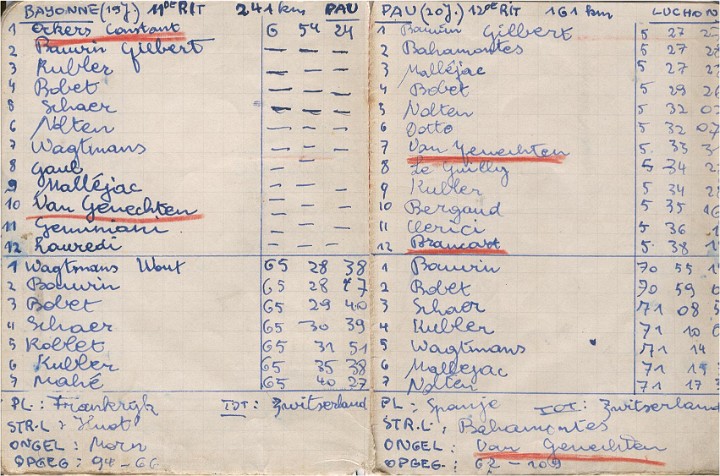 BAYONNE (19J.) 11DE RIT 241 km PAU
1 Ockers Constant 6 54 24
2 Bauvin Gilbert — — —
3 Kubler — — —
4 Bobet — — —
5 Schaer — — —
6 Nolten — — —
7 Wagtmans — — —
8 Gaul — — —
9 Malléjac — — —
10 Van Genechten — — —
11 Geminiani — — —
12 Lauredi — — —
1 Wagtmans Wout 65 28 38
2 Bauvin 65 28 47
3 Bobet 65 29 40
4 Schaer 65 30 39
5 Koblet 65 31 51
6 Kubler 65 35 38
7 Mahé 65 40 27
PL: Frankrijk TOT: Zwitserland
STR.L: Huot
ONGEL: Morn
OPGEG: 94-66
PAU (20J.) 12DE RIT 161 km LUCHON
1 Bauvin Gilbert 5 27
2 Bahamontes 5 27
3 Malléjac 5 27
4 Bobet 5 29
5 Nolten 5 32
6 Dotto 5 32 07
7 Van Genechten 5 33
8 Le Guilly 5 34
9 Kubler 5 34
10 Bergaud 5 35
11 Clerici 5 36
12 Brancart 5 38
1 Bauvin 70 55
2 Bobet 70 59
3 Schaer 71 08
4 Kubler 71 10
5 Wagtmans 71 14
6 Mallejac 71 15
7 Nolten 71 17
PL: Spanje TOT: Zwitserland
STR.L: Bahamontes
ONGEL: Van Genechten
OPGEG: 62-109